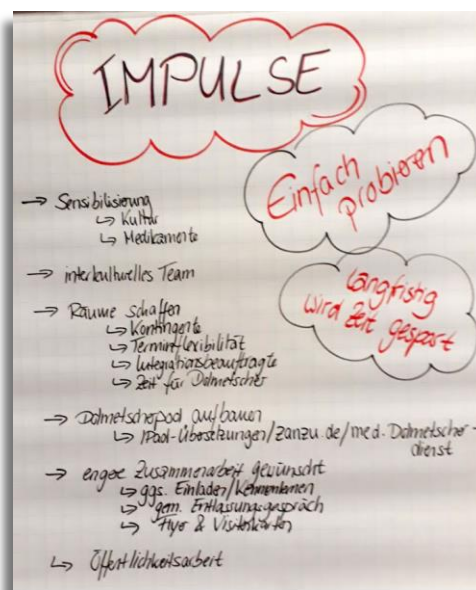 IMPULSE
Einfach
probieren
langfristig
wird Zeit gespart
→ Sensibilisierung
↳ Kultur
↳ Medikamente
→ interkulturelles Team
→ Räume schaffen
↳ Kontingente
↳ Terminflexibilität
↳ Integrationsbeauftragte
↳ Zeit für Dolmetscher
→ Dolmetscherpool aufbauen
↳ IPad-Übersetzungen/zanzu.de/med. Dolmetscher-
dienst
→ enge Zusammenarbeit gewünscht
↳ ggs. Einladen/Kennenlernen
↳ gem. Entlassungsgespräch
↳ Flyer & Visitenkarten
↳ Öffentlichkeitsarbeit